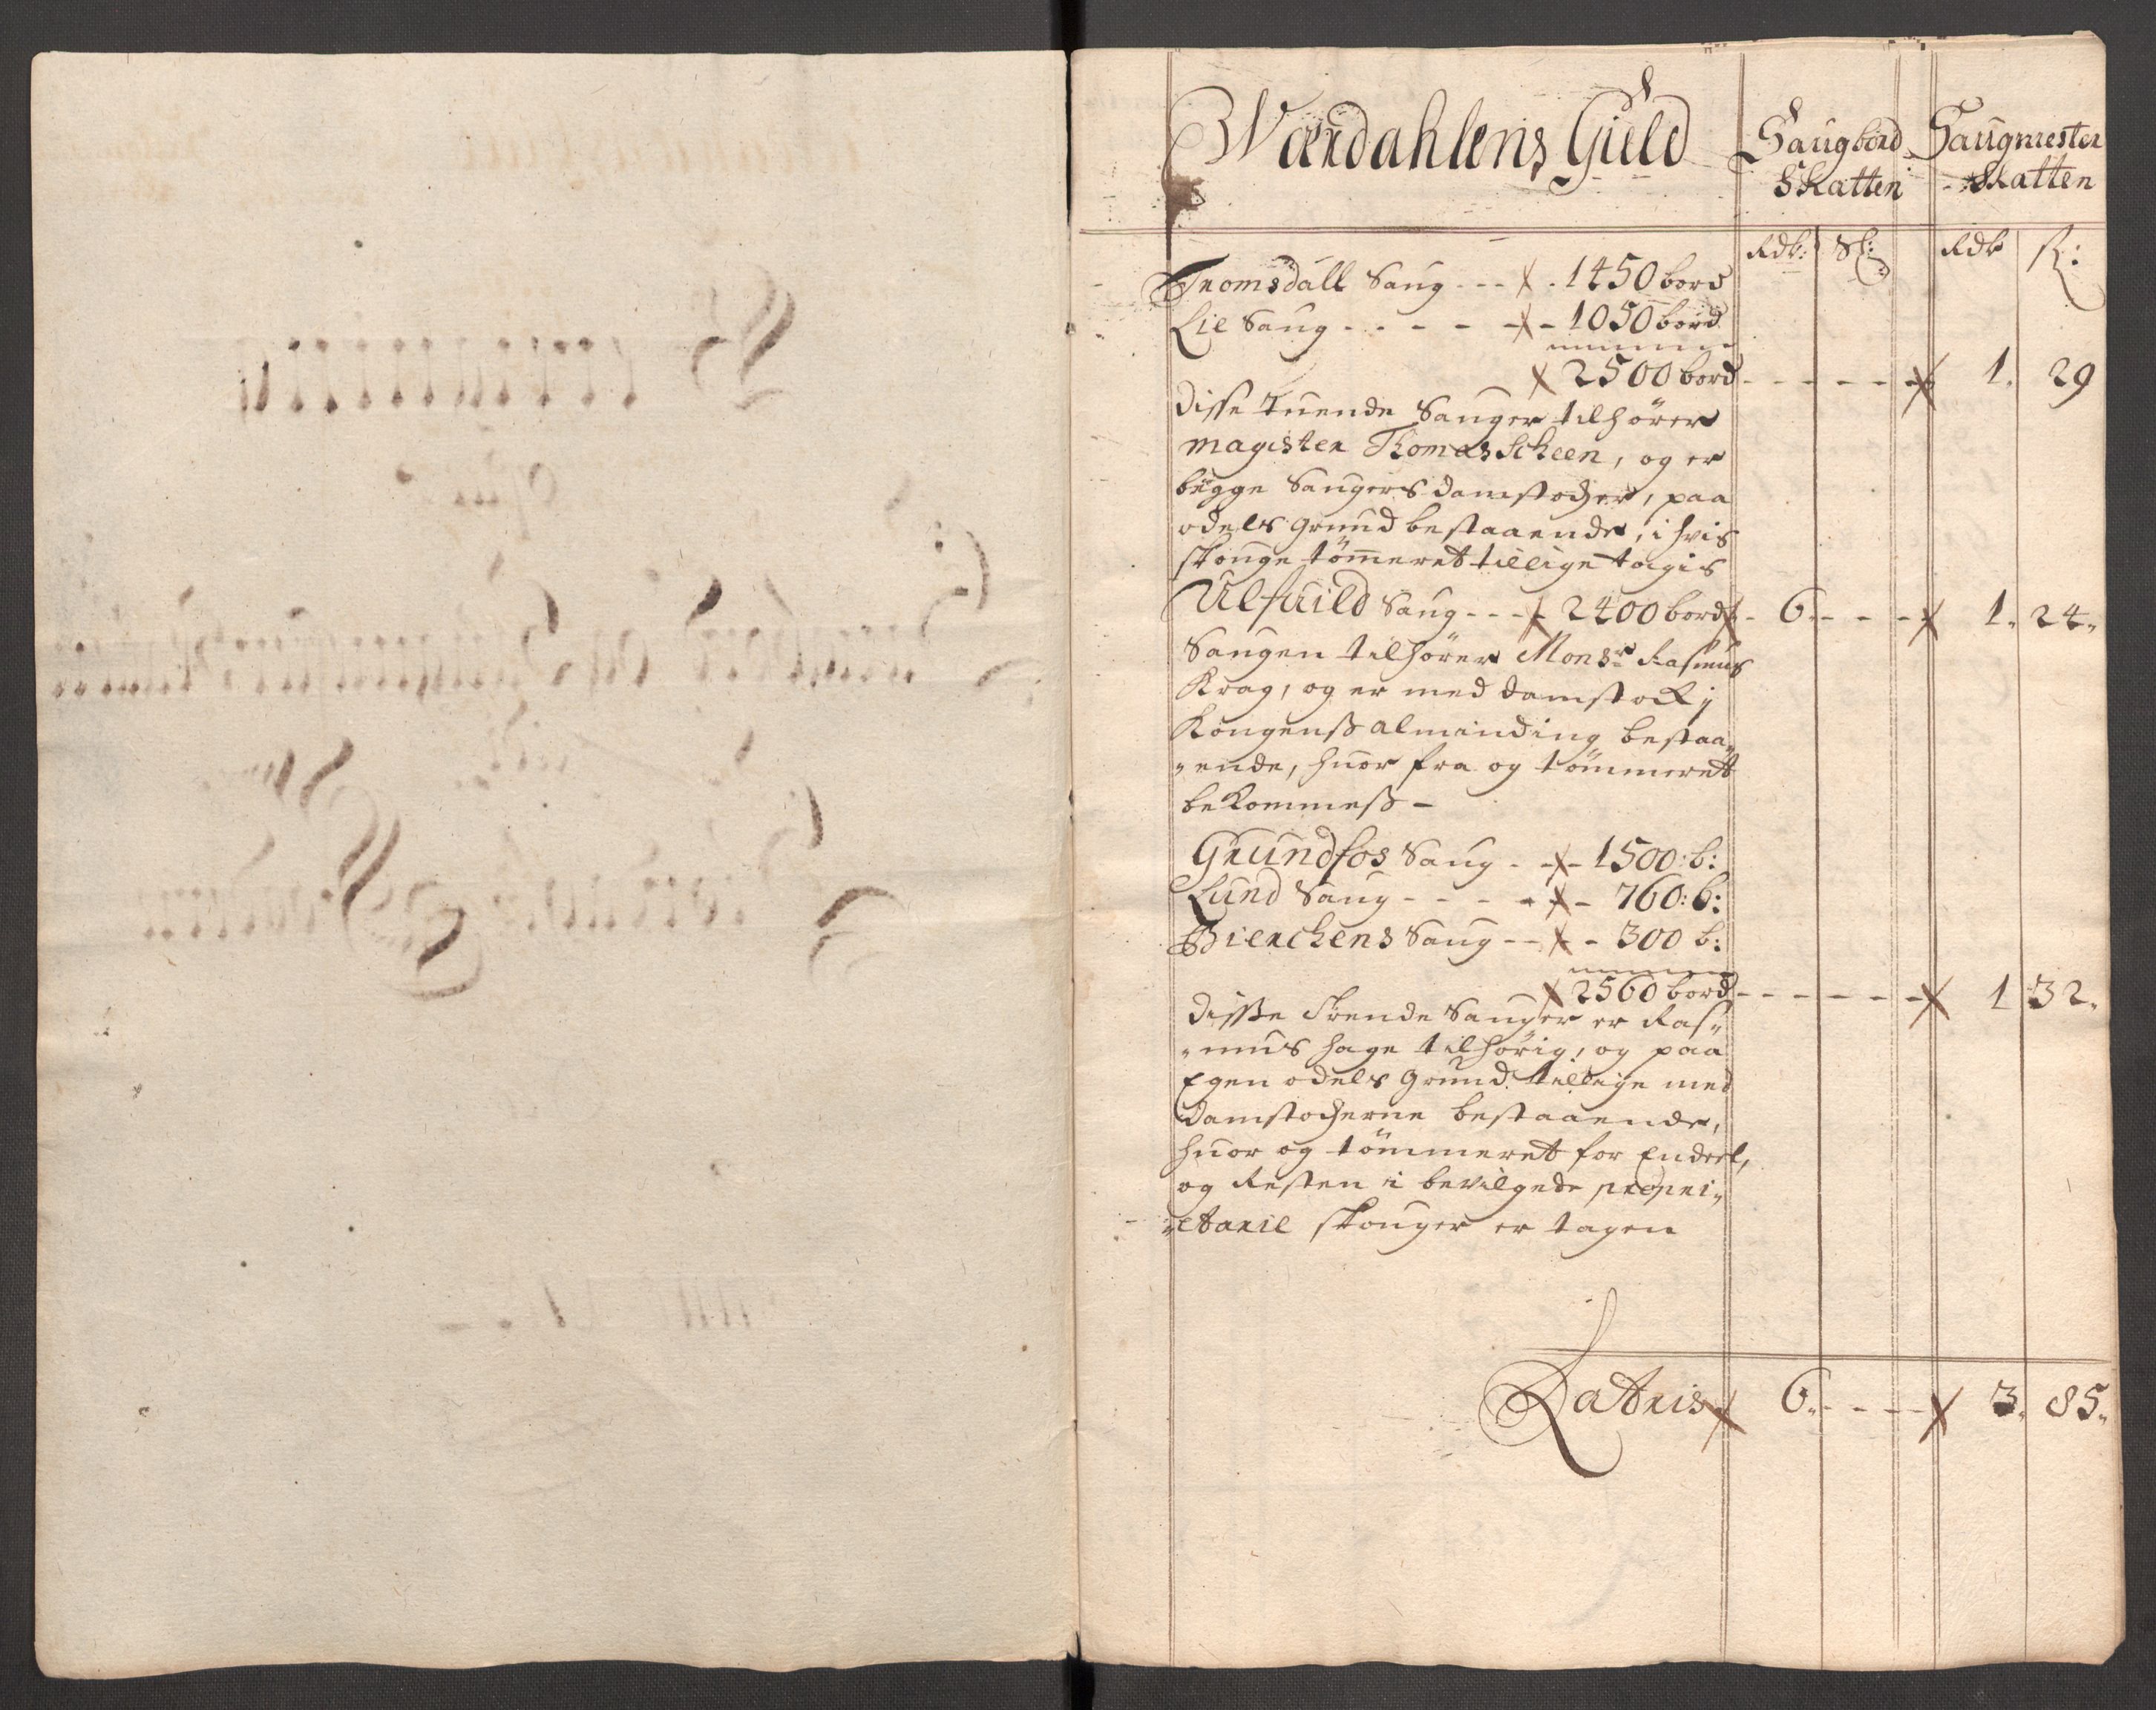 Wærdahlens Gield
Saugbord Skatten
Saugmester Skatten
Rdlr: Sk: Rdlr ß:
Tromsdall Saug - - - 1450 bord
Lie Saug - - - - - 1050 bord
2500 bord - - - - - 1. 29
Disse tuende Sauger tilhører
Magister Thomas Scheen, og er
begge Saugers damstocher, paa
odels grund bestaaende, i hvis
skouge tømeret tillige tagis
Ulfuild Saug - - - 2400 bord - 6. - - - 1. 24.
Saugen tilhører Monsr Rasmus
Krag, og er med damstock j
Kongenß alminding bestaa„
„ende, huor fra og tømmeret
bekommeß -
Grundfos Saug - - 1500: b:
Lund Saug - - - - - 760: b:
Bierchens Saug - - - 300 b:
2560 bord - - - - - 1 32.
Disse trende Sauger er Ras„
„mus Hage tilhørig, og paa
Egen odels Grund tillige med
damstocherne bestaaende,
huor og tømmeret for Endeel,
og Resten i bevilgede proprie„
„tarie skouger er tagen
Latris 6. - - - 3. 85.